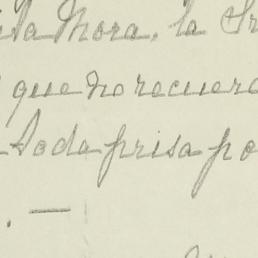 Mora, la
que no recuer
toda prisa po
. —